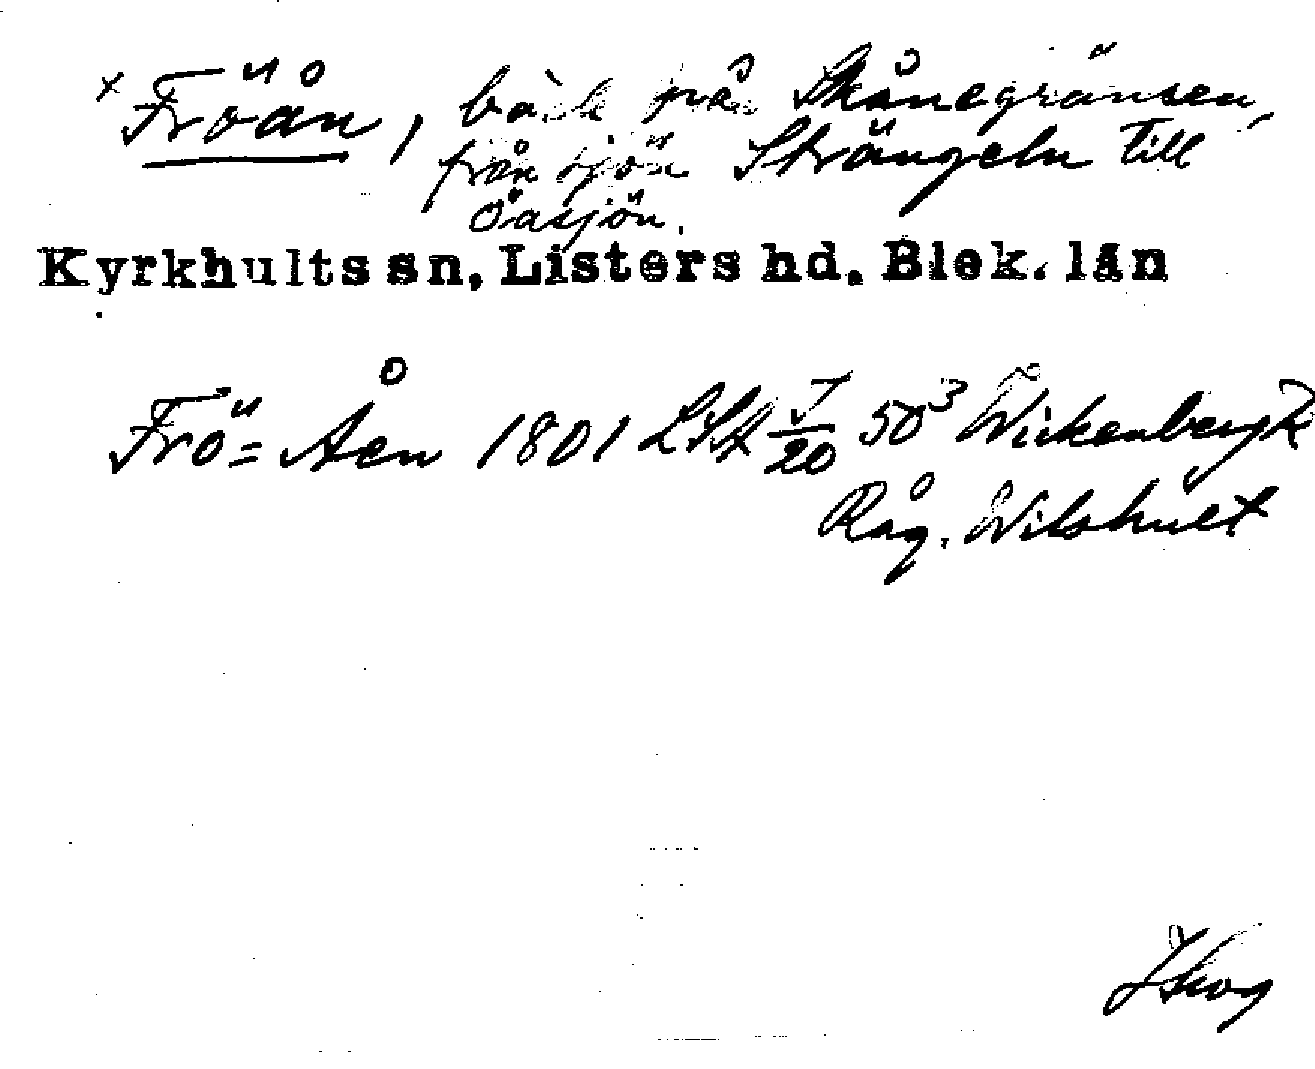 x Fröån, bäck från Skånegränsen,
från sjön Strängeln till
Öasjön.
Kyrkhults sn, Listers hd. Blek. län
Frö=Åen 1801 LSA 7/20 50³ Wirkenberg
Råg. Wilshult